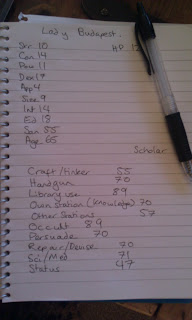 Lady Budapest.
Str 10 HP 12
Con 14
Pow 11
Dex 17
App 4
Size 9
Int 14
Ed 18
San 55
Age 65
Scholar
Craft/Tinker 55
Handgun 70
Library use 89
Own Station (Knowledge) 70
Other Stations 57
Occult 89
Persuade 70
Repair/Devise 70
Sci/Med 71
Status 47